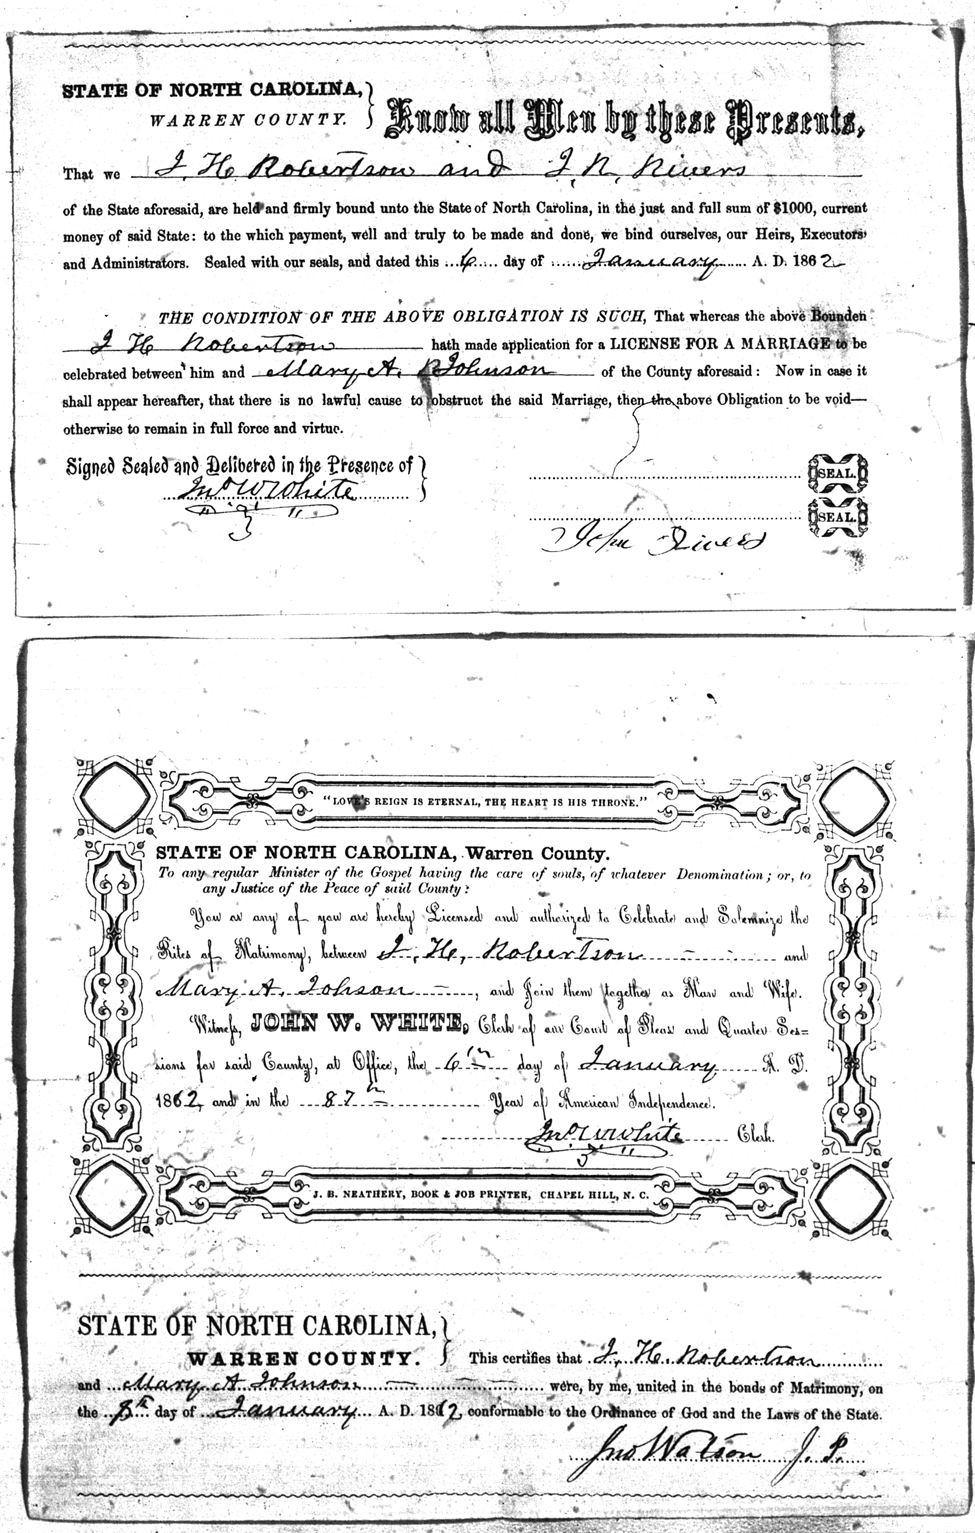 STATE OF NORTH CAROLINA,
WARREN COUNTY.
Know all Men by these Presents,
That we J. H. Robertson and J. N. Rivers
of the State aforesaid, are held and firmly bound unto the State of North Carolina, in the just and full sum of $1000, current
money of said State: to the which payment, well and truly to be made and done, we bind ourselves, our Heirs, Executors,
and Administrators. Sealed with our seals, and dated this 6 day of January A. D. 1862
THE CONDITION OF THE ABOVE OBLIGATION IS SUCH, That whereas the above Bounden
J H Robertson hath made application for a LICENSE FOR A MARRIAGE to be
celebrated between him and Mary A. Johnson of the County aforesaid: Now in case it
shall appear hereafter, that there is no lawful cause to obstruct the said Marriage, then the above Obligation to be void—
otherwise to remain in full force and virtue.
Signed Sealed and Delivered in the Presence of
Jno W White
SEAL.
SEAL.
John Rivers
"LOVE'S REIGN IS ETERNAL, THE HEART IS HIS THRONE."
STATE OF NORTH CAROLINA, Warren County.
To any regular Minister of the Gospel having the care of souls, of whatever Denomination; or, to
any Justice of the Peace of said County:
You or any of you are hereby Licensed and authorized to Celebrate and Solemnize the
Rites of Matrimony, between J. H. Robertson and
Mary A. Johson, and Join them together as Man and Wife.
Witness, JOHN W. WHITE, Clerk of our Court of Pleas and Quarter Ses=
sions for said County, at Office, the 6th day of January A. D.
1862 and in the 87th Year of American Independence.
Jno W White Clerk.
J. B. NEATHERY, BOOK & JOB PRINTER, CHAPEL HILL, N. C.
STATE OF NORTH CAROLINA,
WARREN COUNTY.
This certifies that J. H. Robertson
and Mary A Johnson were, by me, united in the bonds of Matrimony, on
the 8th day of January A. D. 1862, conformable to the Ordinance of God and the Laws of the State.
Jno Watson J. P.